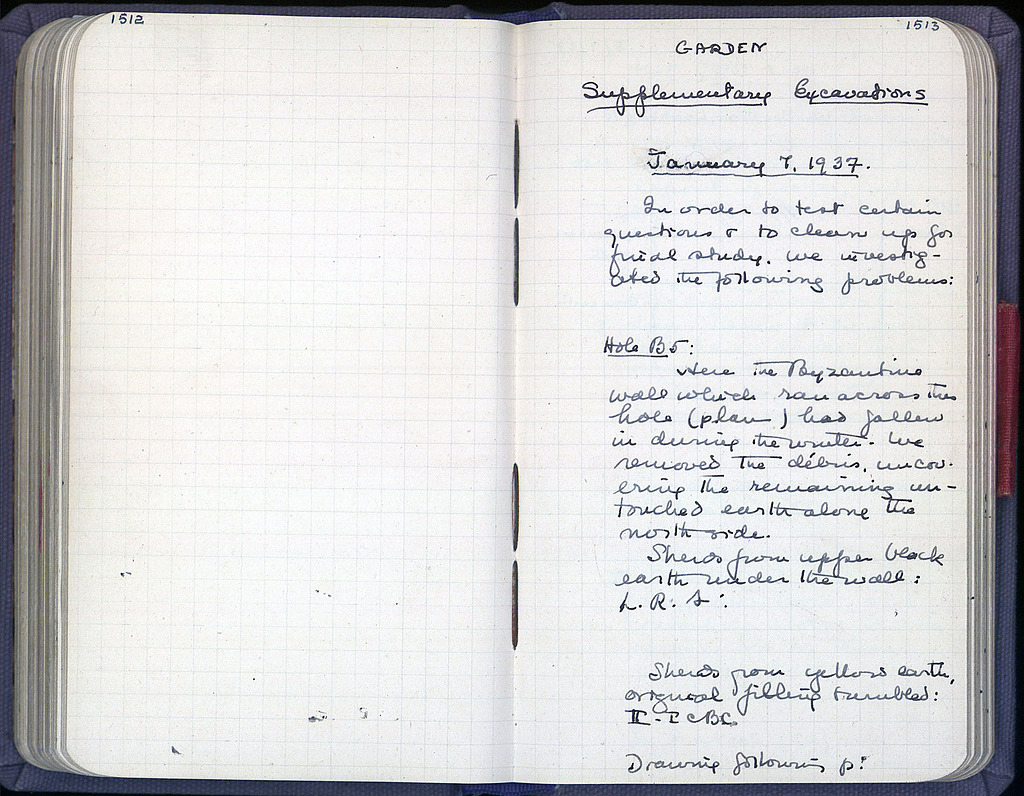 1512
1513
GARDEN
Supplementary Excavations
January 7, 1937.
In order to test certain
questions & to clean up for
final study, we investig-
ated the following problems:
Hole B5:
Here the Byzantine
wall which ran across the
hole (plan ) had fallen
in during the winter. We
removed the débris, uncov-
ering the remaining un-
touched earth along the
north side.
Sherds from upper black
earth under the wall:
L. R. &:
Sherds from yellow earth,
original filling tumbled:
II - I c BC
Drawing following p: